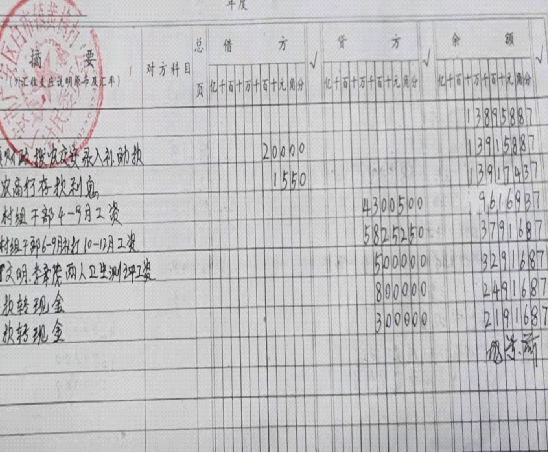 年度
摘 要 对方科目 总页 借 方 √ 贷 方 √ 余 额 √
(外汇收支应说明原币及汇率) 亿千百十万千百十元角分 亿千百十万千百十元角分 亿千百十万千百十元角分
13895887
录入补助款 20000 13915887
农商行存款利息 1550 13917437
村组干部4-9月工资 4300500 9616937
村组干部6-9月补打10-12月工资 5825250 3791687
文明、李 两人卫生测评工资 500000 3291687
款转现金 800000 2491687
款转现金 300000 2191687